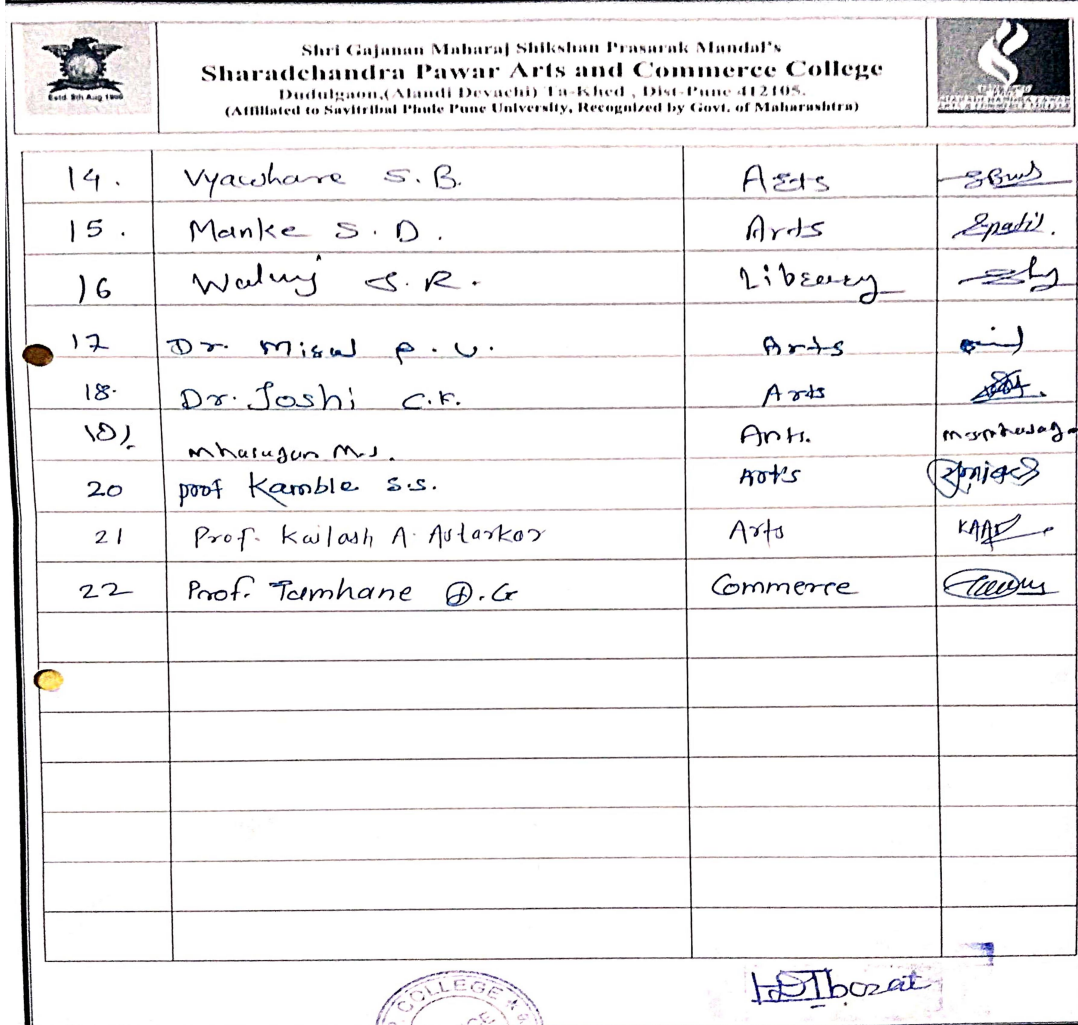 Estd. 8th Aug 1990
Shri Gajanan Maharaj Shikshan Prasarak Mandal's
Sharadchandra Pawar Arts and Commerce College
Dudulgaon,(Alandi Devachi) Ta-Khed , Dist-Pune 412105.
(Affiliated to Savitribai Phule Pune University, Recognized by Govt. of Maharashtra)
14. Vyawhare S.B. Arts
15. Manke S.D. Arts Spatil.
16 Walunj S.R. Library
17 Dr. Misal P.U. Arts
18. Dr. Joshi C.K. Arts
Arts.
20 proof Kamble S.S. Arts
21 Prof. Kailash A. Autarkar Arts
22 Prof. Tamhane D.G Commerce
COLLEGE